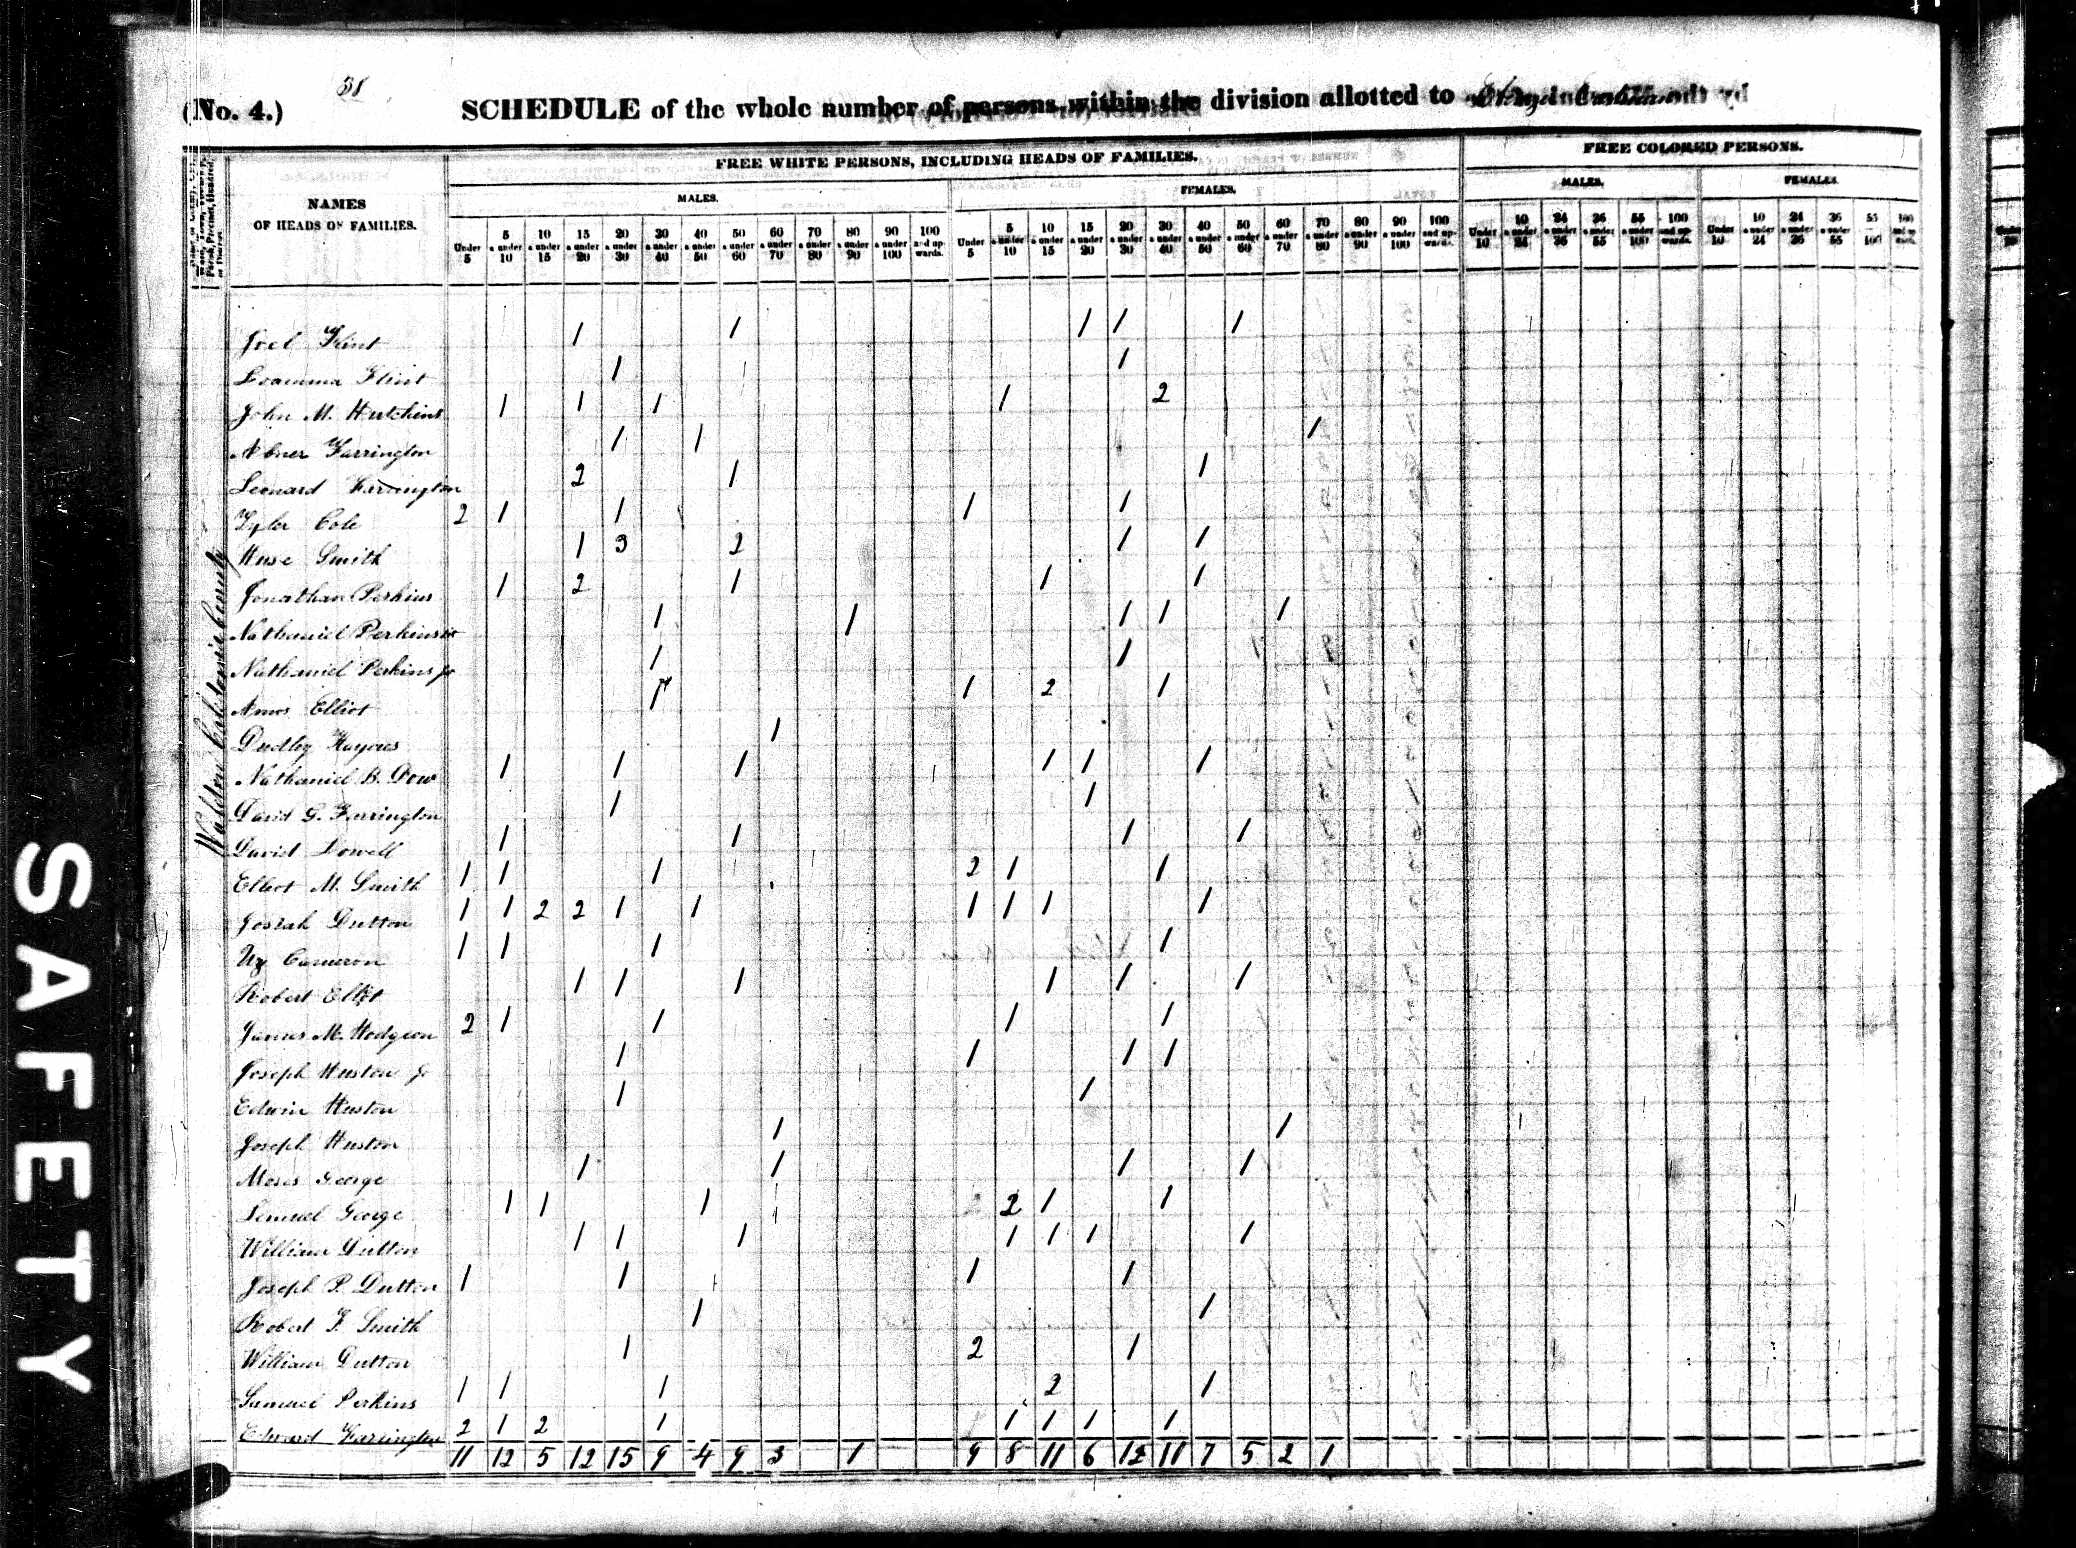 38
(No. 4.) SCHEDULE of the whole number of persons within the division allotted to
NAMES OF HEADS OF FAMILIES.
FREE WHITE PERSONS, INCLUDING HEADS OF FAMILIES.
FREE COLORED PERSONS.
MALES. FEMALES. MALES. FEMALES.
Under 5 | 5 & under 10 | 10 & under 15 | 15 & under 20 | 20 & under 30 | 30 & under 40 | 40 & under 50 | 50 & under 60 | 60 & under 70 | 70 & under 80 | 80 & under 90 | 90 & under 100 | 100 and upwards. | Under 5 | 5 & under 10 | 10 & under 15 | 15 & under 20 | 20 & under 30 | 30 & under 40 | 40 & under 50 | 50 & under 60 | 60 & under 70 | 70 & under 80 | 80 & under 90 | 90 & under 100 | 100 and upwards. | Under 10 | 10 & under 24 | 24 & under 36 | 36 & under 55 | 55 & under 100 | 100 and upwards. | Under 10 | 10 & under 24 | 24 & under 36 | 36 & under 55 | 55 100 | 100
Walden Caledonia County
Joel Flint 1 1 1 1 1
Flint 1 1
John M. Hutchins 1 1 1 1 2
Abner Farrington 1 1 1
Leonard Farrington 2 1 1
Tyler Cole 2 1 1 1 1
Huse Smith 1 3 2 1 1
Jonathan Perkins 1 2 1 1 1
Nathaniel Perkins 1 1 1 1 1
Nathaniel Perkins Jr 1 1
Amos Elliot 1 1 2 1
Dudley 1
Nathaniel B. Dow 1 1 1 1 1 1
David G. Farrington 1 1
David Dowell 1 1 1 1
Elliot M. Smith 1 1 1 2 1 1
Josiah Dutton 1 1 2 2 1 1 1 1 1 1
Uz Cameron 1 1 1 1
Robert Elliot 1 1 1 1 1 1
James M. Hodgeon 2 1 1 1 1
Joseph Huston Jr 1 1 1 1
Edwin Huston 1 1
Joseph Huston 1 1
Moses George 1 1 1 1
Lemuel George 1 1 1 2 1 1
William Dutton 1 1 1 1 1 1 1
Joseph P. Dutton 1 1 1 1
Robert F. Smith 1 1
William Dutton 1 2 1
Samuel Perkins 1 1 1 2 1
Edward Farrington 2 1 2 1 1 1 1 1
11 12 5 12 15 9 4 9 3 1 9 8 11 6 12 11 7 5 2 1
SAFETY